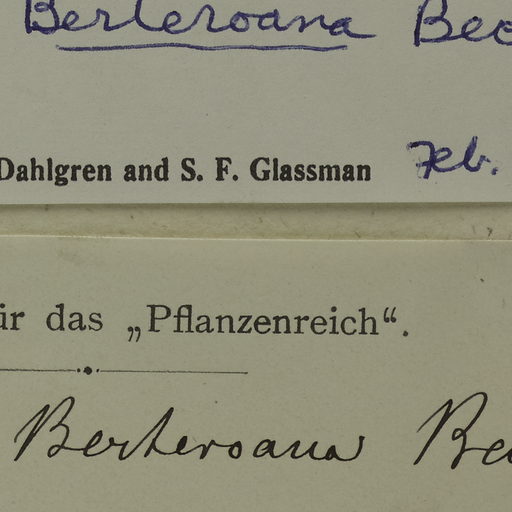 Berteroana Bec
Dahlgren and S. F. Glassman Feb.
ür das „Pflanzenreich“.
Berteroana Be